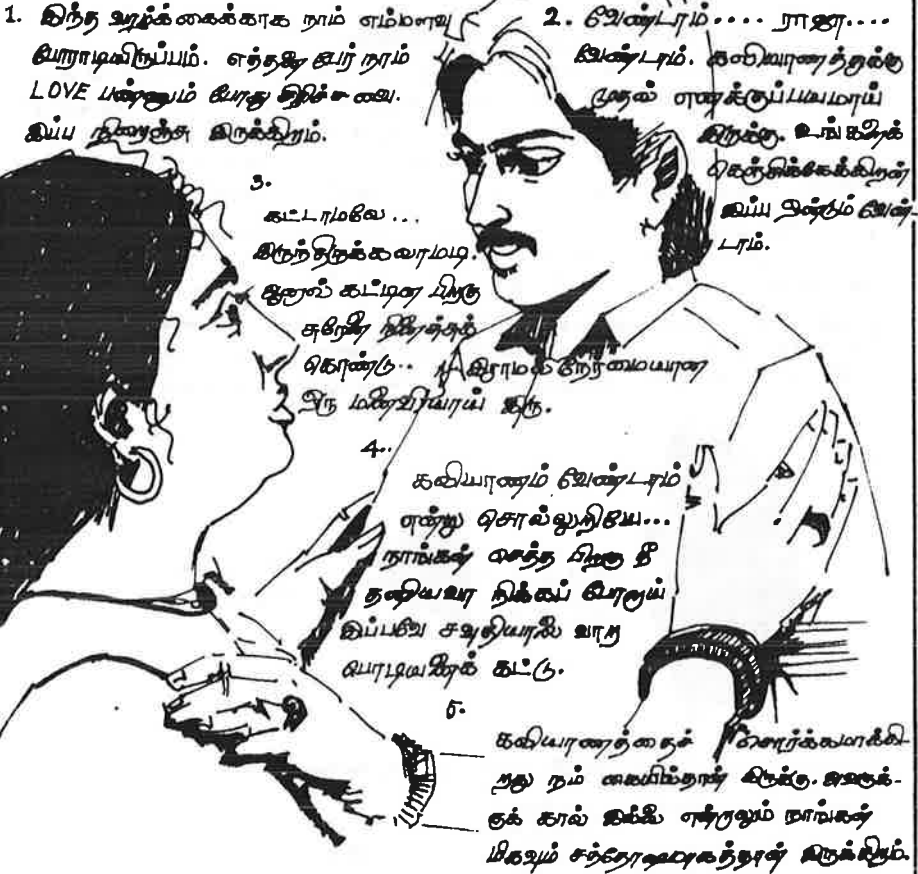 1. இந்த வாழ்க்கைக்காக நாம் எம்மளவு
போராடியிருப்பம். எத்தனை பேர் நாம்
LOVE பண்ணும் போது சிரிச்சவை.
இப்ப நிறைஞ்சு இருக்கிறம்.
2. வேண்டாம்.... ராஜா....
வேண்டாம். கலியாணத்துக்கு
முதல் எனக்குப்பயமாய்
இருக்கு. உங்களைக்
கெஞ்சிக்கேக்கிறன்
இப்ப ஒண்டும் வேண்-
டாம்.
3.
கட்டாமலே...
இருந்திருக்கலாமடி.
ஆனால் கட்டின பிறகு
சுரேனை நினைத்துக்
கொண்டு.. இராமல் நேர்மையான
ஒரு மனைவியாய் இரு.
4..
கலியாணம் வேண்டாம்
என்று சொல்லுறியே...
நாங்கள் செத்த பிறகு நீ
தனியவா நிக்கப் போறாய்
இப்பவே சவுதியாலை வாற
பொடியனைக் கட்டு.
5.
கலியாணத்தைச் சொர்க்கமாக்கி-
றது நம் கையில்தான் இருக்கு. அவருக்-
குக் கால் இல்லை என்றாலும் நாங்கள்
மிகவும் சந்தோஷமாகத்தான் இருக்கிறம்.